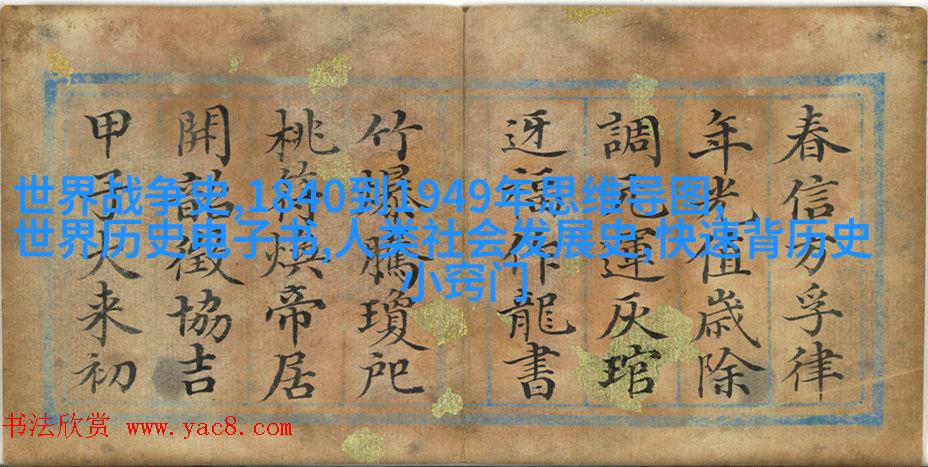 春信分孚律
年光值歲除
調元運灰琯
迓福作龍書
竹爆騰瓊戺
桃符煥帝居
開韶徵協吉
甲子大来初
世界战争史,1840到1949年思维导图,
世界历史电子书,人类社会发展史,快速背历史
小窍门
书法欣赏 www.yac8.com